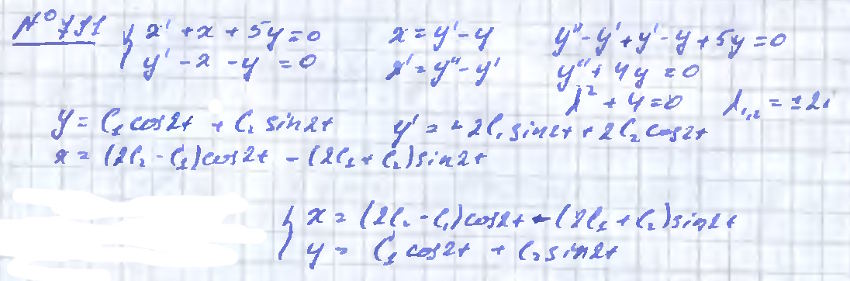 № 791 { x' + x + 5y = 0 x = y' - y y'' - y' + y' - y + 5y = 0
y' - x - y = 0 x' = y'' - y' y'' + 4y = 0
λ² + 4 = 0 λ₁,₂ = ± 2i
y = C₁ cos2t + C₂ sin2t y' = -2C₁ sin2t + 2C₂ cos2t
x = (2C₂ - C₁)cos2t - (2C₁ + C₂)sin2t
{ x = (2C₂ - C₁)cos2t - (2C₁ + C₂)sin2t
y = C₁ cos2t + C₂ sin2t